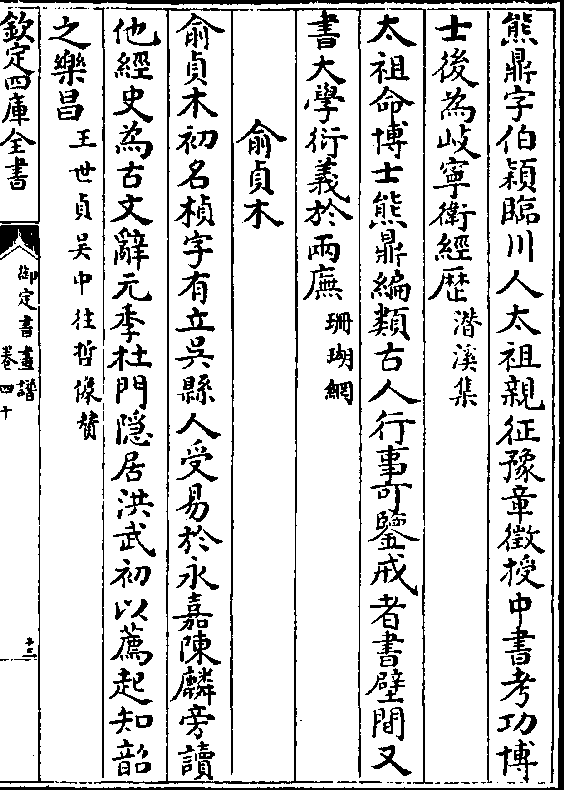 熊鼎字伯穎臨川人太祖親征豫章徵授中書考功博
士後為岐寧衛經歷 潛溪集
太祖命博士熊鼎編類古人行事可鑒戒者書壁間又
書大學衍義於兩廡 珊瑚網
俞貞木
俞貞木初名楨字有立吳縣人受易於永嘉陳麟旁讀
他經史為古文辭元季杜門隱居洪武初以薦起知韶
之樂昌 王世貞吳中往哲像贊
欽定四庫全書
御定書畫譜
卷四十
十三